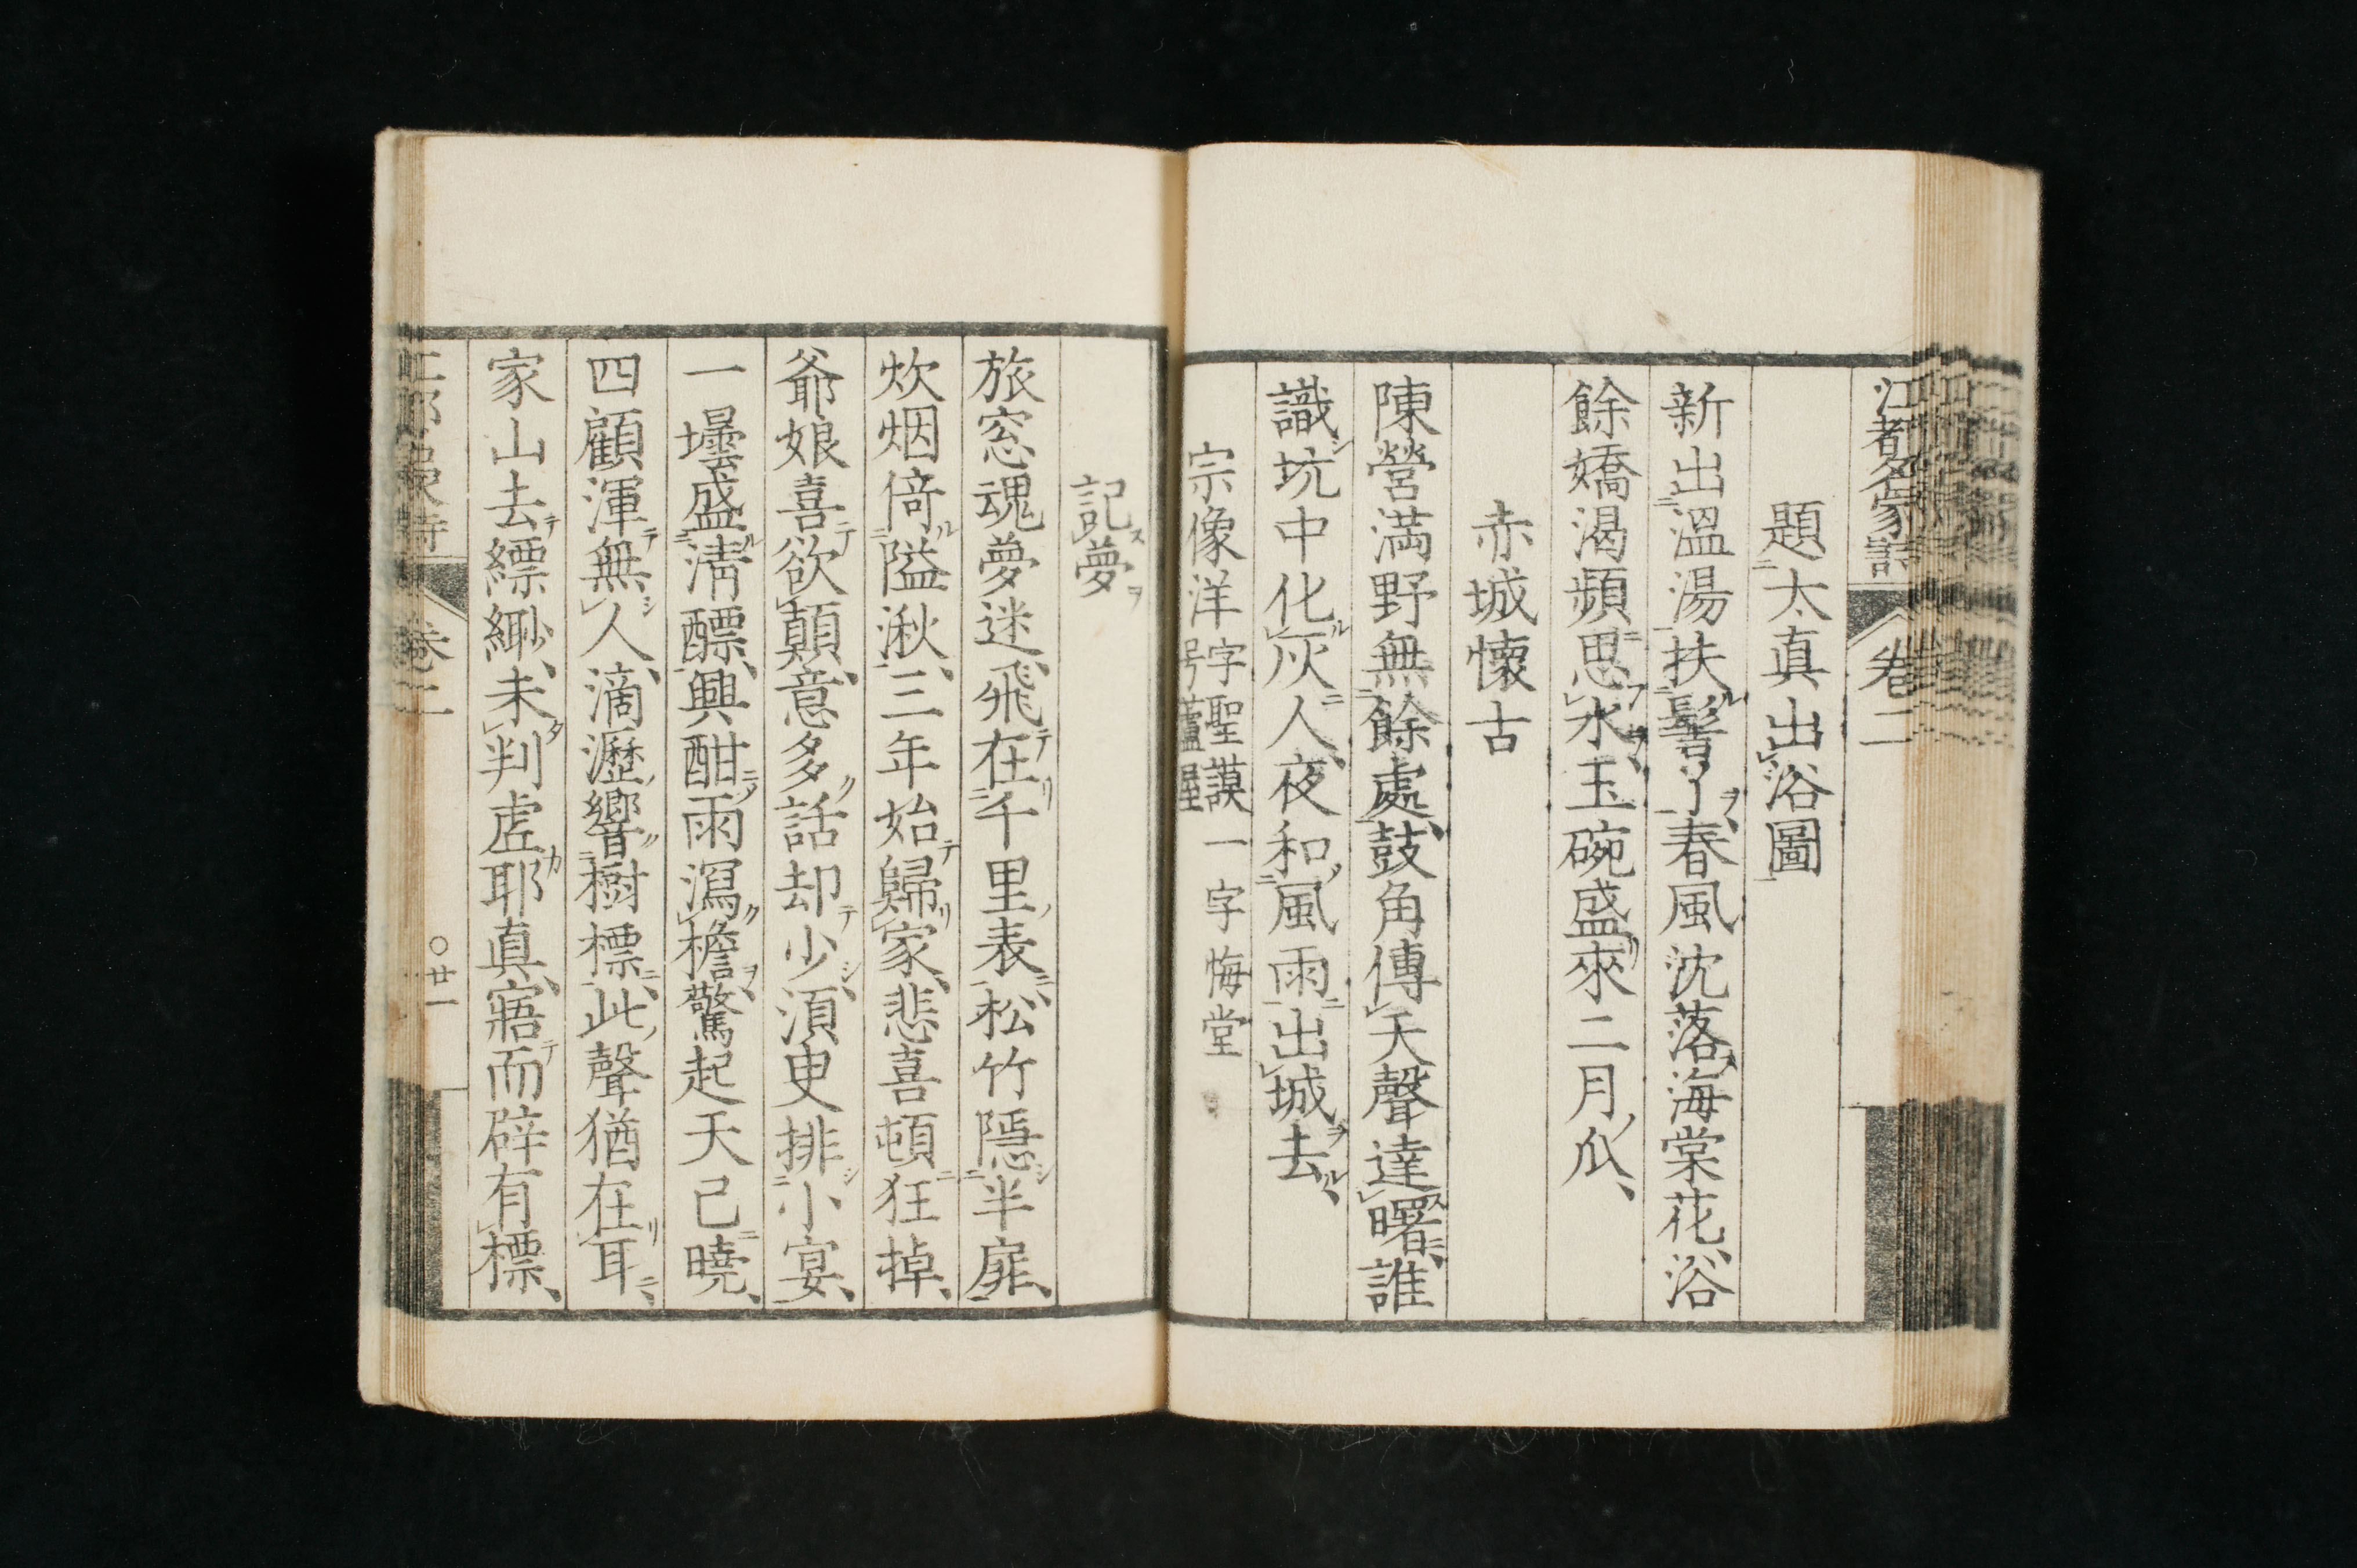 江都名家詩 卷二
題太真出浴圖
新出溫湯扶髻了春風沈落海棠花浴
餘嬌渴頻思水玉碗盛來二月瓜
赤城懷古
陳營満野無餘處鼓角傳天聲達曙誰
識坑中化灰人夜和風雨出城去
宗像洋 字聖謨一字悔堂 号蘆屋
記夢
旅窓魂夢迷飛在千里表松竹隱半扉
炊烟倚隘湫三年始歸家悲喜頓狂掉
爺娘喜欲顛意多話却少須臾排小宴
一壜盛清醥興酣雨瀉檐驚起天已曉
四顧渾無人滴瀝響樹標此聲猶在耳
家山去縹緲未判虛耶真寤而辟有標
卷二 〇廿一